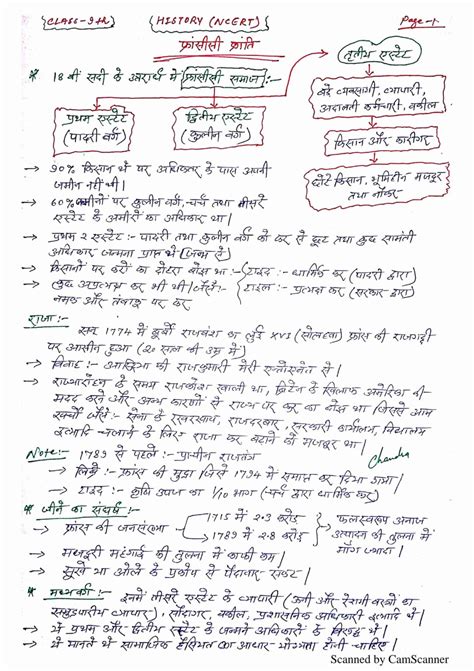 CLASS-9th
HISTORY (NCERT)
Page-1
फ्रांसीसी क्रांति
* 18 वीं सदी के उत्तरार्ध में फ्रांसीसी समाज :-
प्रथम एस्टेट (पादरी वर्ग)
द्वितीय एस्टेट (कुलीन वर्ग)
तृतीय एस्टेट
बड़े व्यवसायी, व्यापारी, अदालती कर्मचारी, वकील
किसान और कारीगर
छोटे किसान, भूमिहीन मजदूर तथा नौकर
→ 90% किसान थे पर अधिकतर के पास अपनी
जमीन नहीं थी।
→ 60% जमीनों पर कुलीन वर्ग, चर्च तथा तीसरे
एस्टेट के अमीरों का अधिकार था।
→ प्रथम 2 एस्टेट :- पादरी तथा कुलीन वर्ग को कर से छूट तथा कुछ सामंती
अधिकार जन्मना प्राप्त थे
→ किसानों पर करों का दोहरा बोझ था :- टाइद :- धार्मिक कर (पादरी द्वारा)
→ कुछ अप्रत्यक्ष कर भी थी जैसे :- टाइल :- प्रत्यक्ष कर (सरकार द्वारा)
नमक और तंबाकू पर कर
राजा :-
सन् 1774 में बूर्बों राजवंश का लुई XVI (सोलहवां) फ्रांस की राजगद्दी
पर आसीन हुआ (20 साल की उम्र में)
→ विवाह :- आस्ट्रिया की राजकुमारी मेरी एन्तोएनेत से।
→ राज्यारोहण के समय राजकोष खाली था, ब्रिटेन के खिलाफ अमेरिका की
मदद करने और अन्य कारणों से राज्य पर कर का बोझ था जिससे आम
खर्चों जैसे :- सेना के रखरखाव, राजदरबार, सरकारी कार्यालय, विद्यालय
इत्यादि चलाने के लिए राजा कर बढ़ाने को मजबूर था।
Note:- 1789 से पहले :- प्राचीन राजतंत्र
Chandra
→ लिव्रे :- फ्रांस की मुद्रा जिसे 1794 में समाप्त कर दिया गया।
→ टाइद :- कृषि उपज का 1/10 भाग (चर्च द्वारा धार्मिक कर)
* जीने का संघर्ष :-
→ फ्रांस की जनसंख्या
1715 में 2.3 करोड़
1789 में 2.8 करोड़
फलस्वरूप अनाज उत्पादन की तुलना में मांग ज्यादा।
→ मजदूरी महंगाई की तुलना में काफी कम।
→ सूखे या ओले के प्रकोप से पैदावार
* मध्यवर्ग :- इनमें तीसरे एस्टेट के व्यापारी (ऊनी और रेशमी वस्त्रों का
समुद्रपारीय व्यापार), सौदागर, वकील, प्रशासनिक अधिकारी इत्यादि थे।
→ ये प्रथम और द्वितीय एस्टेट के जन्मने अधिकारों के विरुद्ध थे।
→ ये मानते थे सामाजिक हैसियत का आधार योग्यता होनी चाहिए।
Scanned by CamScanner